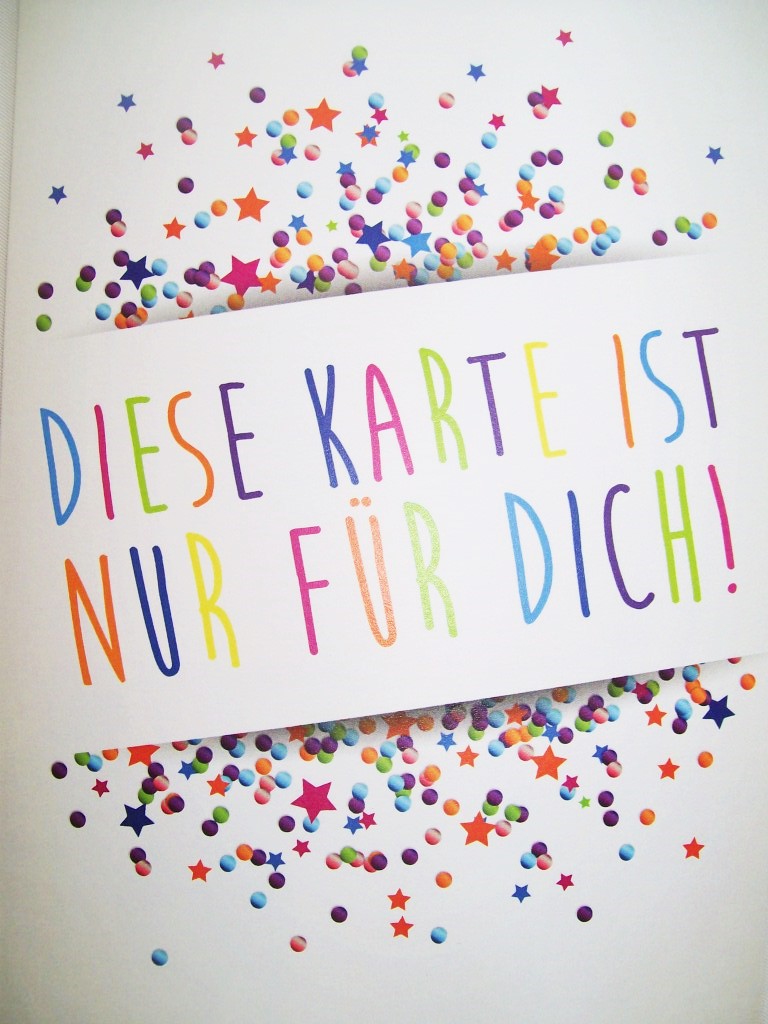 DIESE KARTE IST
NUR FÜR DICH!